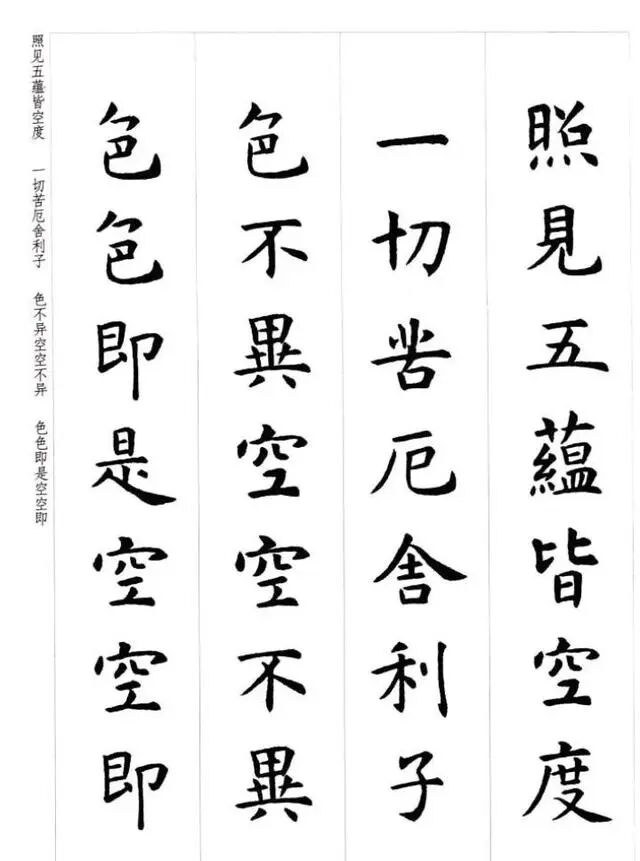 照見五蘊皆空度
一切苦厄舍利子
色不異空空不異
色色即是空空即
照见五蕴皆空度 一切苦厄舍利子 色不异空空不异 色色即是空空即